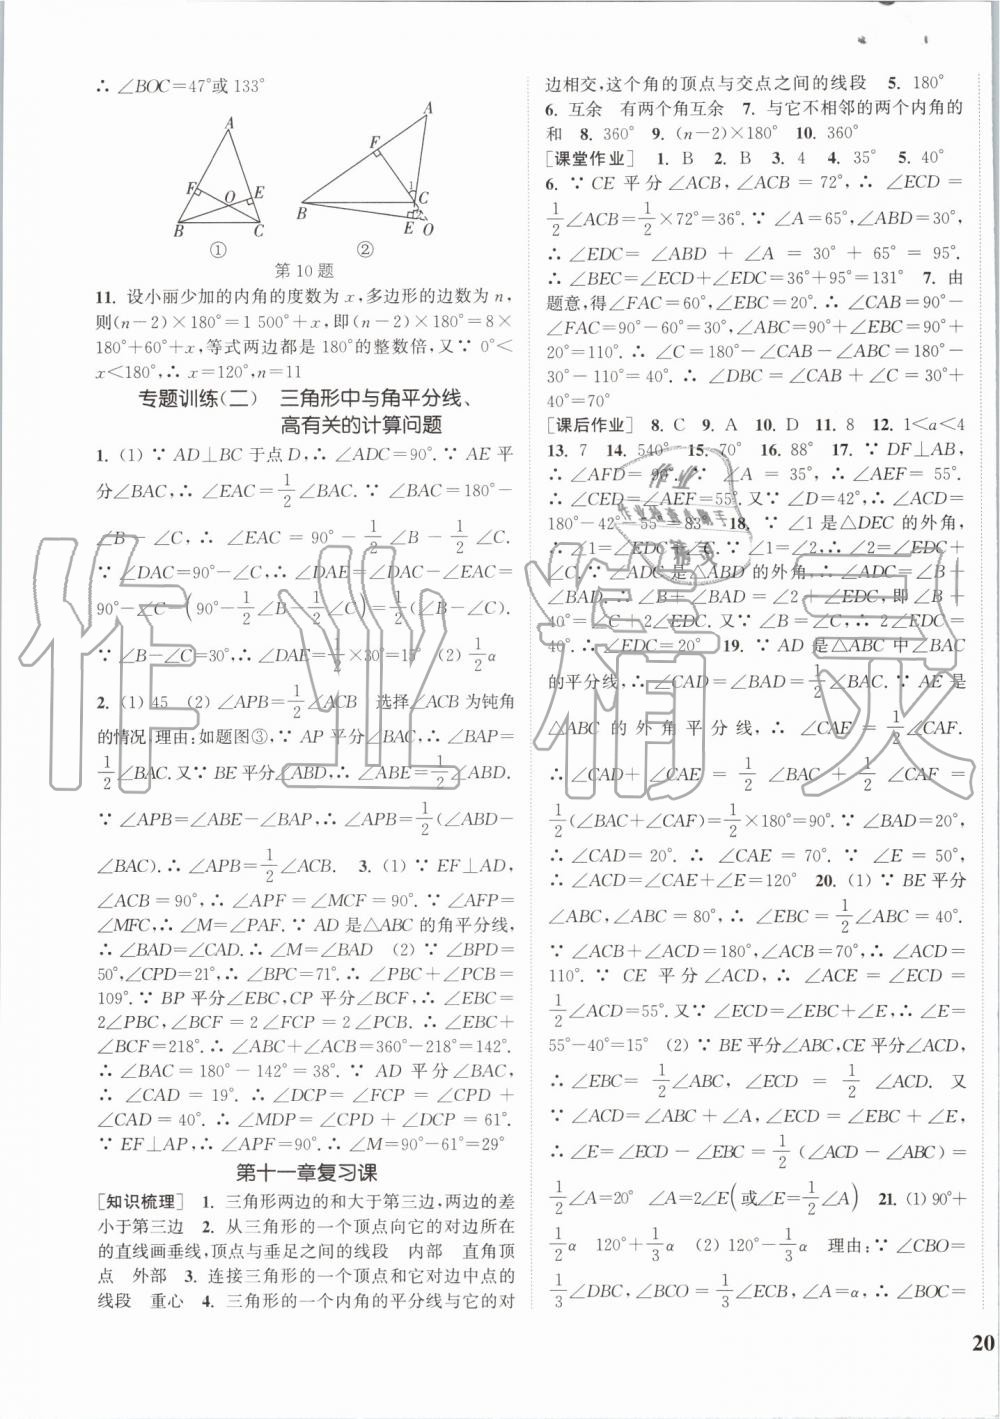 ∴ ∠BOC=47°或 133°
A
F
O
E
B
C
①
A
F
1
C
B
E
O
②
第 10 题
11. 设小丽少加的内角的度数为 x,多边形的边数为 n,
则(n-2)×180°=1 500°+x,即(n-2)×180°=8×
180°+60°+x,等式两边都是 180°的整数倍,又∵ 0°<
x<180°,∴ x=120°,n=11
专题训练(二) 三角形中与角平分线、
高有关的计算问题
1. (1) ∵ AD⊥BC 于点 D,∴ ∠ADC=90°.∵ AE 平
分∠BAC,∴ ∠EAC=1/2∠BAC.∵ ∠BAC=180°-
∠B-∠C,∴ ∠EAC=90°-1/2∠B-1/2∠C.
∵ ∠DAC=90°-∠C,∴ ∠DAE=∠DAC-∠EAC=
90°-∠C-(90°-1/2∠B-1/2∠C)=1/2(∠B-∠C).
∵ ∠B-∠C=30°,∴ ∠DAE=1/2×30°=15° (2) 1/2α
2. (1) 45 (2) ∠APB=1/2∠ACB 选择∠ACB 为钝角
的情况,理由:如题图③,∵ AP 平分∠BAC,∴ ∠BAP=
1/2∠BAC.又∵ BE 平分∠ABD,∴ ∠ABE=1/2∠ABD.
∵ ∠APB=∠ABE-∠BAP,∴ ∠APB=1/2(∠ABD-
∠BAC).∴ ∠APB=1/2∠ACB. 3. (1) ∵ EF⊥AD,
∠ACB=90°,∴ ∠APF=∠MCF=90°.∵ ∠AFP=
∠MFC,∴ ∠M=∠PAF.∵ AD 是△ABC 的角平分线,
∴ ∠BAD=∠CAD.∴ ∠M=∠BAD (2) ∵ ∠BPD=
50°,∠CPD=21°,∴ ∠BPC=71°.∴ ∠PBC+∠PCB=
109°.∵ BP 平分∠EBC,CP 平分∠BCF,∴ ∠EBC=
2∠PBC,∠BCF=2∠FCP=2∠PCB.∴ ∠EBC+
∠BCF=218°.∴ ∠ABC+∠ACB=360°-218°=142°.
∴ ∠BAC=180°-142°=38°.∵ AD 平分∠BAC,
∴ ∠CAD=19°.∴ ∠DCP=∠FCP=∠CPD+
∠CAD=40°.∴ ∠MDP=∠CPD+∠DCP=61°.
∵ EF⊥AP,∴ ∠APF=90°.∴ ∠M=90°-61°=29°
第十一章复习课
[知识梳理] 1. 三角形两边的和大于第三边,两边的差
小于第三边 2. 从三角形的一个顶点向它的对边所在
的直线画垂线,顶点与垂足之间的线段 内部 直角顶
点 外部 3. 连接三角形的一个顶点和它对边中点的
线段 重心 4. 三角形的一个内角的平分线与它的对
边相交,这个角的顶点与交点之间的线段 5. 180°
6. 互余 有两个角互余 7. 与它不相邻的两个内角的
和 8. 360° 9. (n-2)×180° 10. 360°
[课堂作业] 1. B 2. B 3. 4 4. 35° 5. 40°
6. ∵ CE 平分∠ACB,∠ACB=72°,∴ ∠ECD=
1/2∠ACB=1/2×72°=36°.∵ ∠A=65°,∠ABD=30°,
∴ ∠EDC=∠ABD+∠A=30°+65°=95°.
∴ ∠BEC=∠ECD+∠EDC=36°+95°=131° 7. 由
题意,得∠FAC=60°,∠EBC=20°.∴ ∠CAB=90°-
∠FAC=90°-60°=30°,∠ABC=90°+∠EBC=90°+
20°=110°.∴ ∠C=180°-∠CAB-∠ABC=180°-
30°-110°=40°.∴ ∠DBC=∠CAB+∠C=30°+
40°=70°
[课后作业] 8. C 9. A 10. D 11. 8 12. 1<a<4
13. 7 14. 540° 15. 70° 16. 88° 17. ∵ DF⊥AB,
∴ ∠AFD=90°.∵ ∠A=35°,∴ ∠AEF=55°.
∴ ∠CED=∠AEF=55°.又∵ ∠D=42°,∴ ∠ACD=
180°-42°-55°=83° 18. ∵ ∠1 是△DEC 的外角,
∴ ∠1=∠EDC+∠C.又∵ ∠2=∠1,∴ ∠2=∠EDC+
∠C.∵ ∠ADC 是△ABD 的外角,∴ ∠ADC=∠B+
∠BAD.∴ ∠B+∠BAD=∠2+∠EDC,即∠B+
40°=∠C+2∠EDC.又∵ ∠B=∠C,∴ 2∠EDC=
40°.∴ ∠EDC=20° 19. ∵ AD 是△ABC 中∠BAC
的平分线,∴ ∠CAD=∠BAD=1/2∠BAC.∵ AE 是
△ABC 的外角平分线,∴ ∠CAE=1/2∠CAF.
∴ ∠CAD+∠CAE=1/2∠BAC+1/2∠CAF=
1/2(∠BAC+∠CAF)=1/2×180°=90°.∵ ∠BAD=20°,
∴ ∠CAD=20°.∴ ∠CAE=70°.∵ ∠E=50°,
∴ ∠ACD=∠CAE+∠E=120° 20. (1) ∵ BE 平分
∠ABC,∠ABC=80°,∴ ∠EBC=1/2∠ABC=40°.
∵ ∠ACB+∠ACD=180°,∠ACB=70°,∴ ∠ACD=
110°.∵ CE 平分∠ACD,∴ ∠ACE=∠ECD=
1/2∠ACD=55°.又∵ ∠ECD=∠EBC+∠E,∴ ∠E=
55°-40°=15° (2) ∵ BE 平分∠ABC,CE 平分∠ACD,
∴ ∠EBC=1/2∠ABC,∠ECD=1/2∠ACD.又
∵ ∠ACD=∠ABC+∠A,∠ECD=∠EBC+∠E,
∴ ∠E=∠ECD-∠EBC=1/2(∠ACD-∠ABC)=
1/2∠A=20° ∠A=2∠E(或∠E=1/2∠A) 21. (1) 90°+
1/2α 120°+1/3α (2) 120°-1/3α 理由:∵ ∠CBO=
1/3∠DBC,∠BCO=1/3∠ECB,∠A=α,∴ ∠BOC=
20
作业精灵